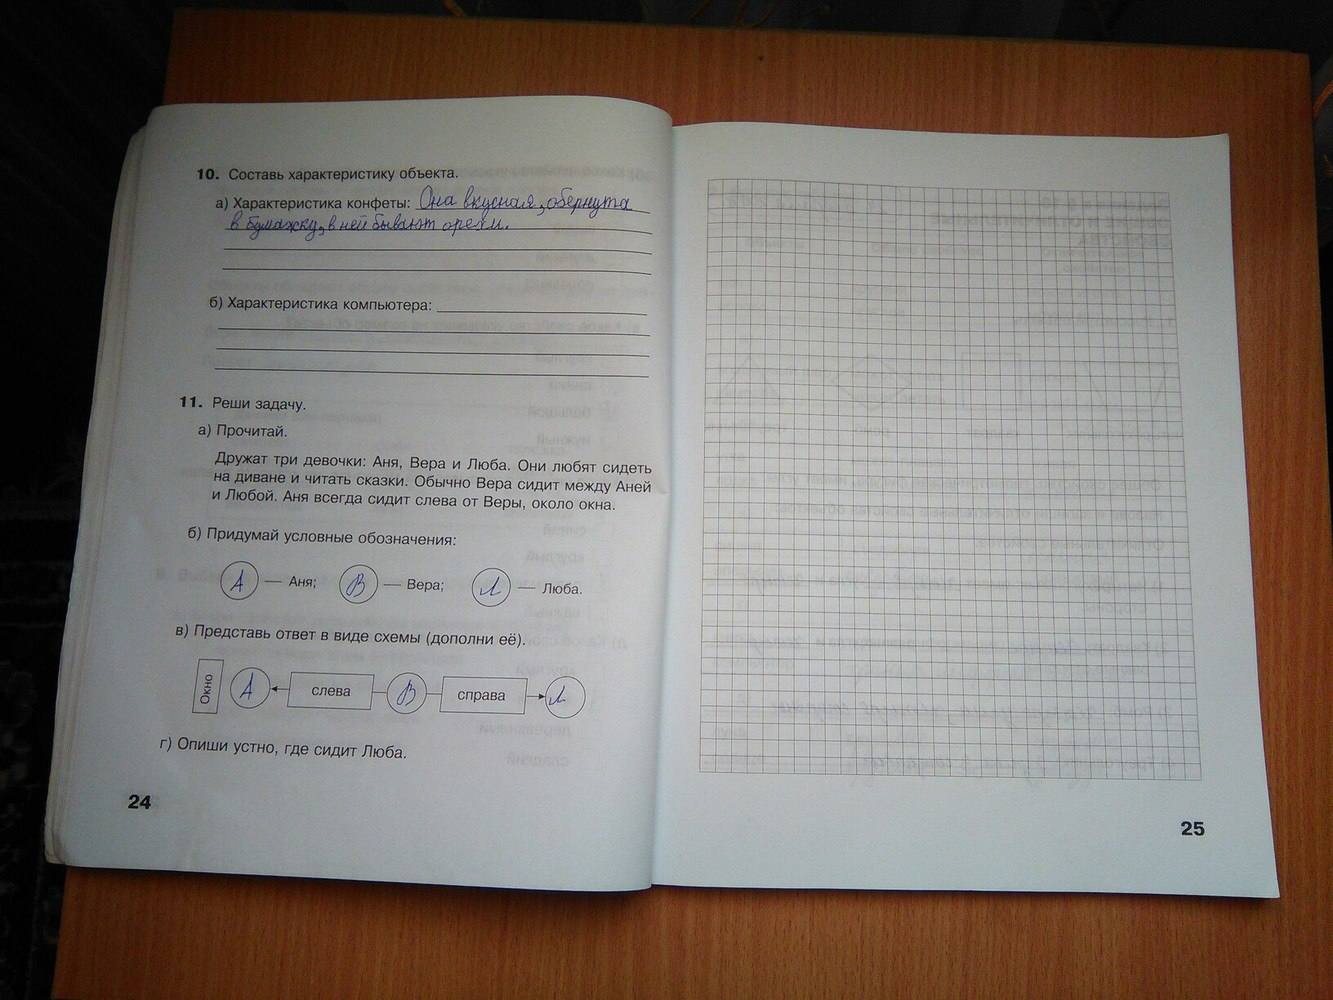 10. Составь характеристику объекта.
а) Характеристика конфеты: Она вкусная, обернута
в бумажку, в ней бывают орехи.
б) Характеристика компьютера:
11. Реши задачу.
а) Прочитай.
Дружат три девочки: Аня, Вера и Люба. Они любят сидеть
на диване и читать сказки. Обычно Вера сидит между Аней
и Любой. Аня всегда сидит слева от Веры, около окна.
б) Придумай условные обозначения:
А — Аня; В — Вера; Л — Люба.
в) Представь ответ в виде схемы (дополни её).
Окно А слева В справа Л
г) Опиши устно, где сидит Люба.
24
25